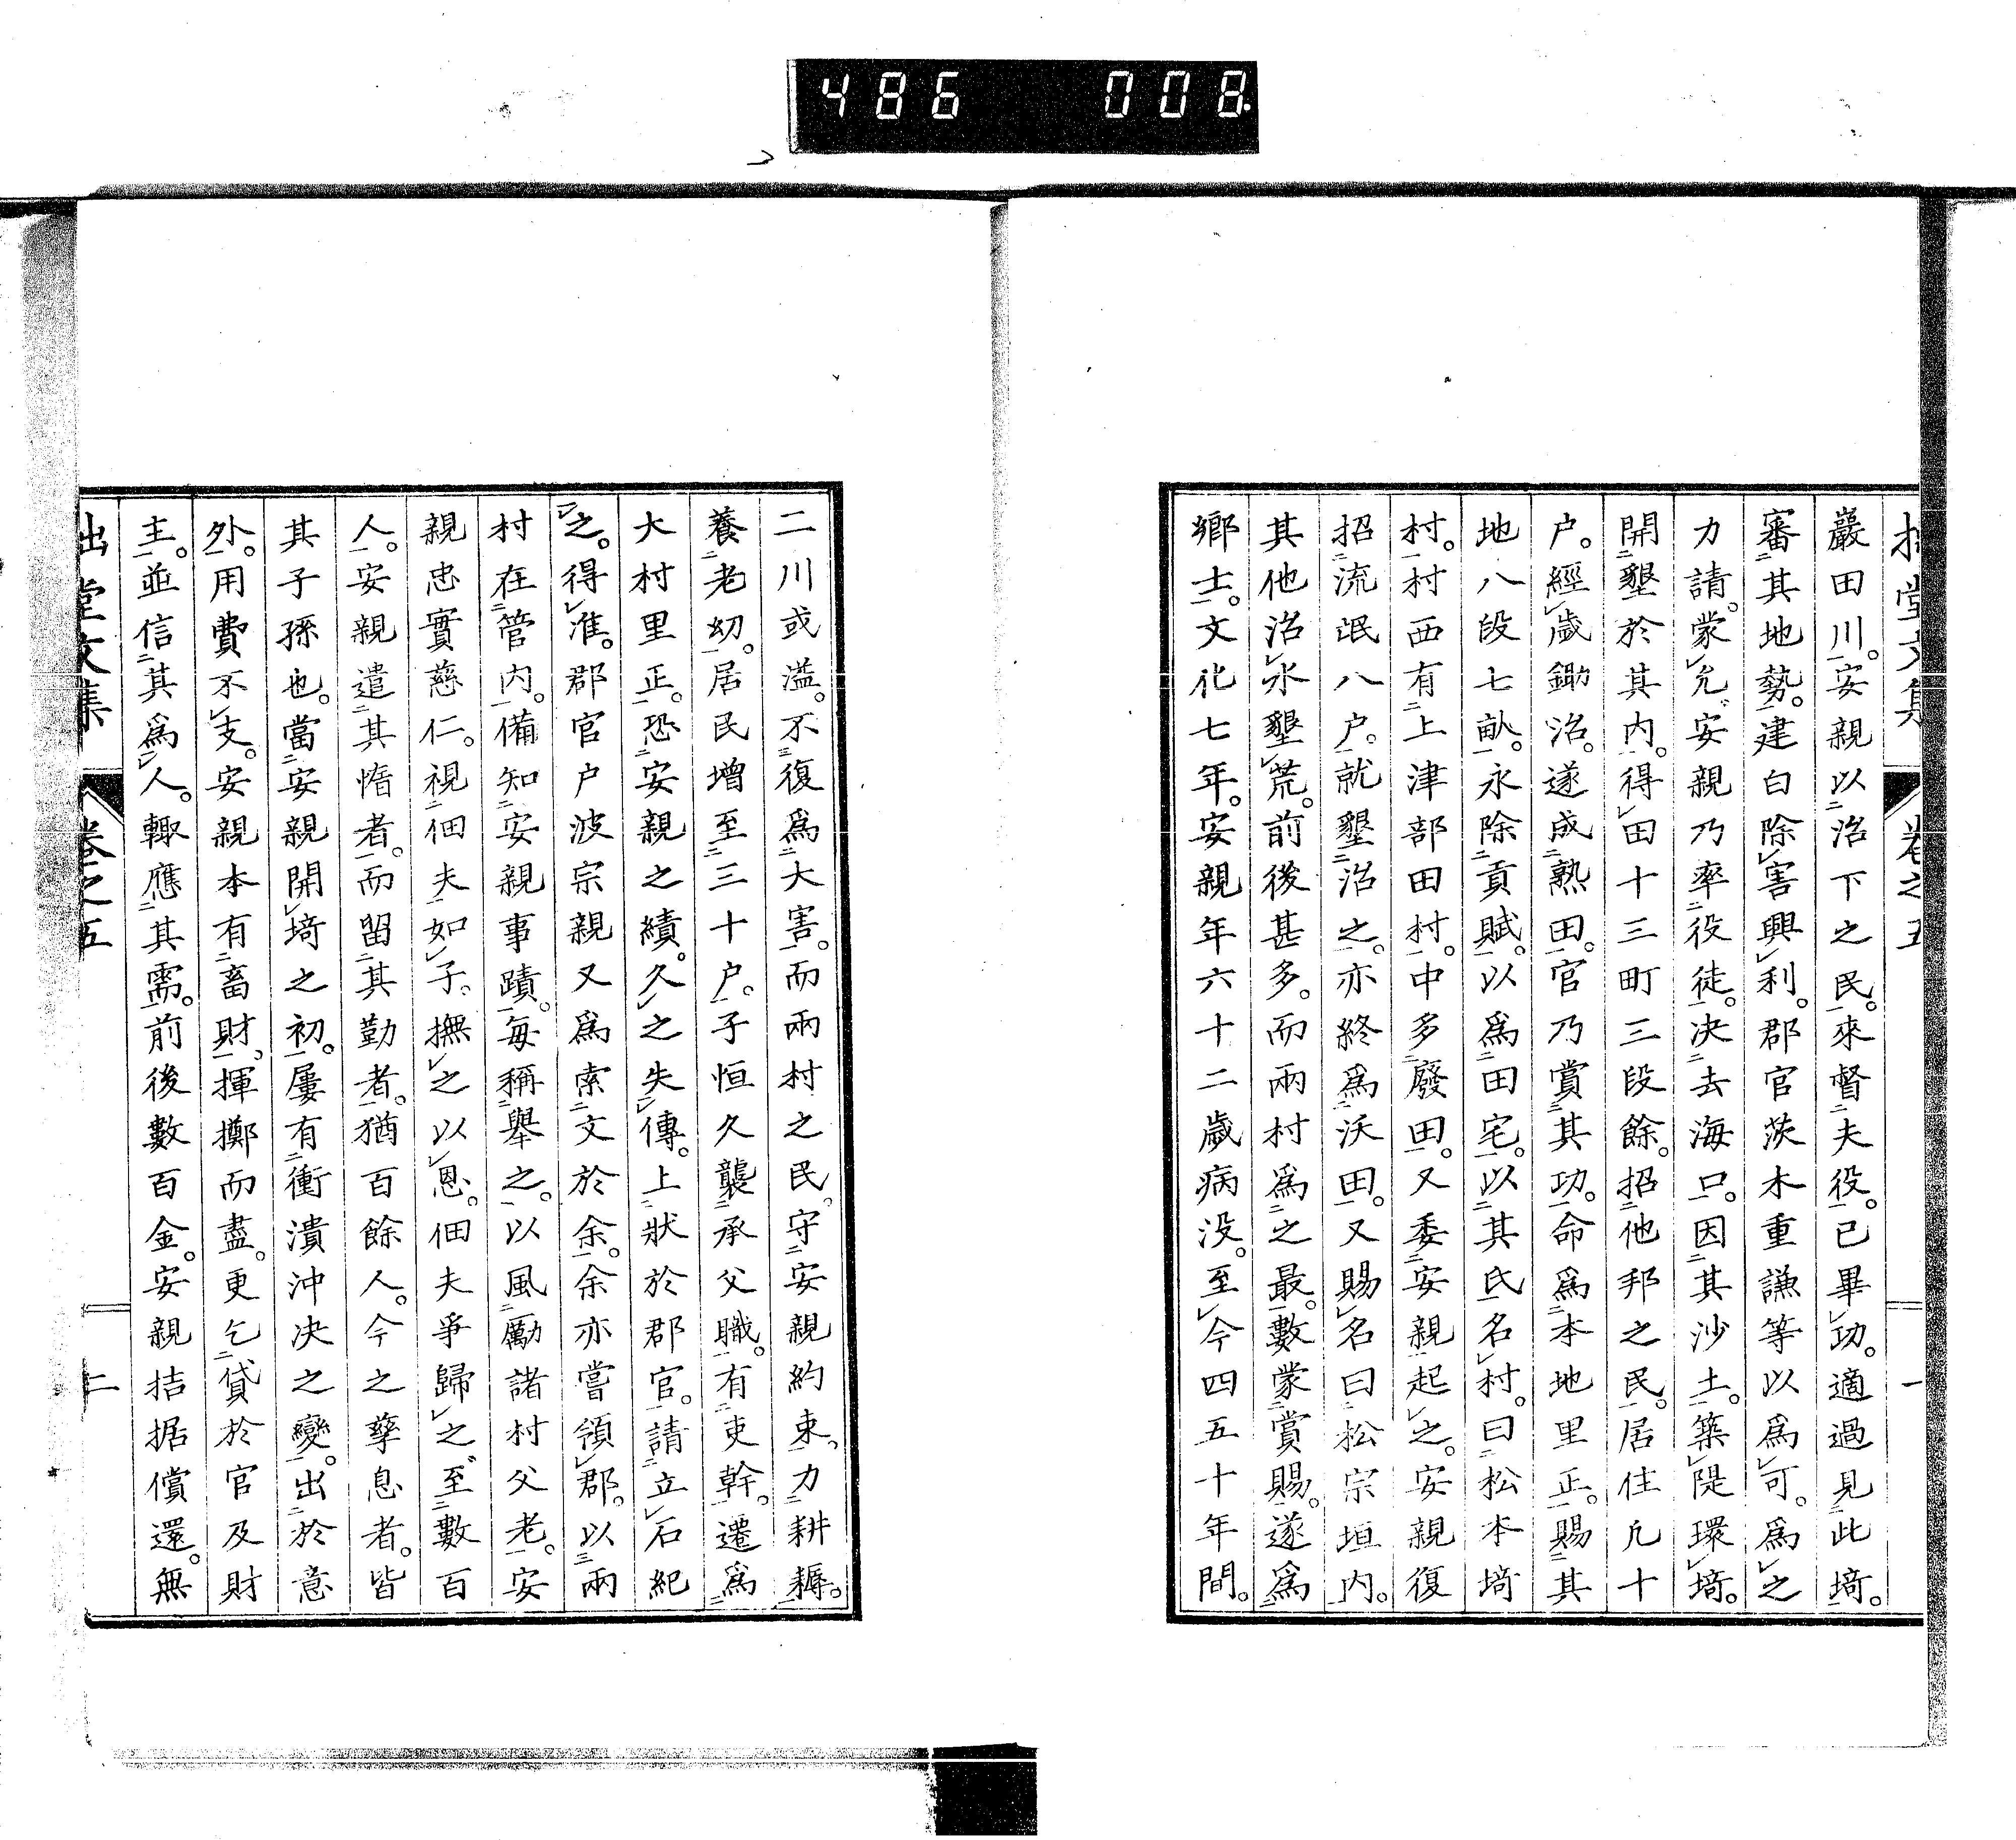 486 008
拙堂文集 卷之五 一
巖田川。安親以治下之民。來督夫役。已畢功。適過見此埼。
審其地勢。建白除害興利。郡官茨木重謙等以爲可。爲之
力請。蒙允。安親乃率役徒。決去海口。因其沙土。築隄環埼。
開墾於其内。得田十三町三段餘。招他邦之民。居住凡十
户。經歲鋤治。遂成熟田。官乃賞其功。命爲本地里正。賜其
地八段七畝。永除貢賦。以爲田宅。以其氏名村。曰松本埼
村。村西有上津部田村。中多廢田。又委安親起之。安親復
招流氓八户。就墾治之。亦終爲沃田。又賜名曰松宗垣内。
其他治水墾荒。前後甚多。而兩村爲之最。數蒙賞賜。遂爲
鄉士。文化七年。安親年六十二歲病没。至今四五十年間。
二川或溢。不復爲大害。而兩村之民。守安親約束。力耕耨。
養老幼。居民增至三十户。子恒久襲承父職。有吏幹。遷爲
大村里正。恐安親之績。久之失傳。上狀於郡官。請立石紀
之。得准。郡官户波宗親又爲索文於余。余亦嘗領郡。以兩
村在管内。備知安親事蹟。每稱舉之。以風勵諸村父老。安
親忠實慈仁。視佃夫如子。撫之以恩。佃夫爭歸之。至數百
人。安親遣其惰者。而留其勤者。猶百餘人。今之孳息者。皆
其子孫也。當安親開埼之初。屢有衝潰沖决之變。出於意
外。用費不支。安親本有畜財。揮擲而盡。更乞貸於官及財
主。並信其爲人。輙應其需。前後數百金。安親拮据償還。無
拙堂文集 卷之五 二